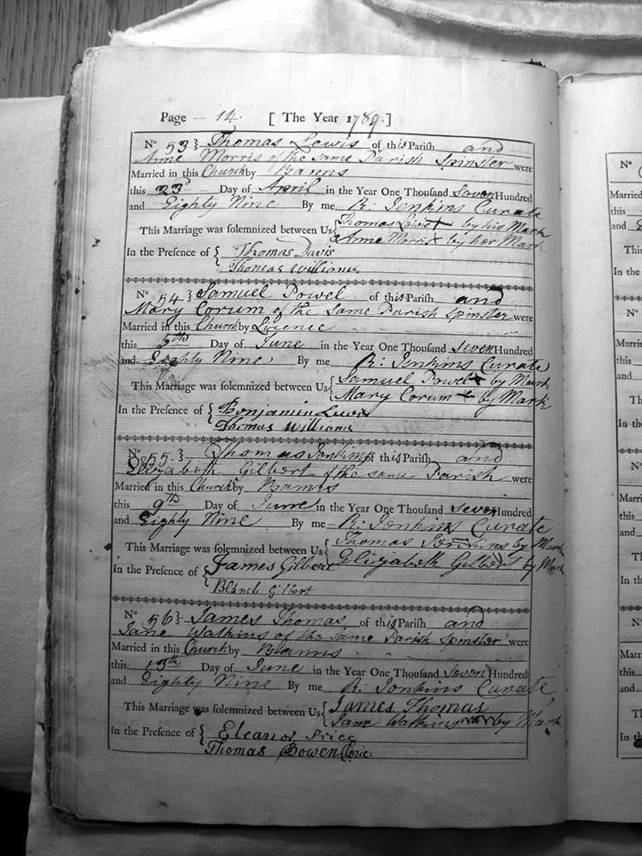 Page — 14. [ The Year 1789. ]
No 53 } Thomas Lewis of this Parish and
Anne Morris of the same Parish Spinster were
Married in this Church by Banns
this 23d Day of April in the Year One Thousand Seven Hundred
and Eighty Nine By me R: Jenkins Curate
This Marriage was solemnized between Us { Thomas Lewis + by his Mark
Anne Morris + by her Mark
In the Presence of { Thomas Davis
Thomas Williams
No 54 } Samuel Powel of this Parish and
Mary Corum of the Same Parish Spinster were
Married in this Church by Licence
this 5th Day of June in the Year One Thousand Seven Hundred
and Eighty Nine By me R: Jenkins Curate
This Marriage was solemnized between Us { Samuel Powel + by Mark
Mary Corum + by Mark
In the Presence of { Benjamin Lewis
Thomas Williams
No 55. } Thomas Jenkins of this Parish and
Elizabeth Gilbert of the same Parish were
Married in this Church by Banns
this 9th Day of June in the Year One Thousand Seven Hundred
and Eighty Nine By me R: Jenkins Curate
This Marriage was solemnized between Us { Thomas Jenkins by Mark
Elizabeth Gilbert by Mark
In the Presence of { James Gilbert
Blanch Gilbert
No 56 } James Thomas of this Parish and
Jane Watkins of the Same Parish Spinster were
Married in this Church by Banns
this Day of June in the Year One Thousand Seven Hundred
and Eighty Nine By me R: Jenkins Curate
This Marriage was solemnized between Us { James Thomas
Jane Watkins by Mark
In the Presence of { Eleanor Price
Thomas Bowen